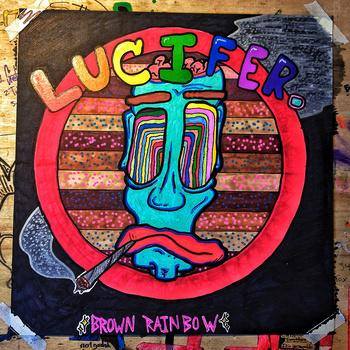 LUCIFER.
BROWN RAINBOW